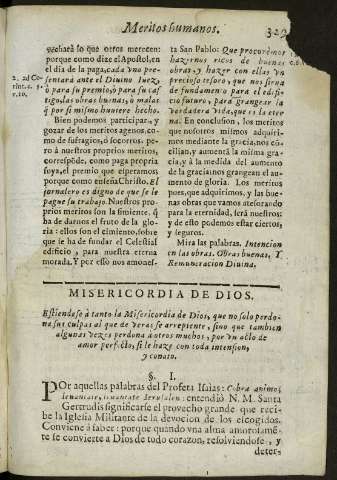 Meritos humanos.
329
vechará lo que otros merecen:
porque como dize el Apostol, en
el dia de la paga, cada vno pre-
sentará ante el Diuino Iuez,
ò para su premio, ò para su cas
tigo, las obras buenas, ò malas
q̃ por si mismo huuiere hecho.
2. ad Co-
rint. c. 5.
v. 10.
Bien podemos participar, y
gozar de los meritos agenos, co-
mo de sufragios, ò socorros, pe-
rò à nuestros proprios meritos,
correspõde, como paga propria
suya, el premio que esperamos;
porque como enseña Christo. El
jornalero es digno de que se le
pague su trabajo. Nuestros pro-
prios meritos son la simiente, q̃
ha de darnos el fruto de la glo-
ria: ellos son el cimiento, sobre
que se ha de fundar el Celestial
edificio, para nuestra eterna
morada. Y por esso nos amones-
ta San Pablo: Que procurèmos
hazernos ricos de buenas
obras, y hazer con ellas vn
precioso tesoro, que nos sirua
de fundamento para el edifi-
cio futuro, para grangear la
verdadera vida, que es la eter
na. En conclusion, los meritos
que nosotros mismos adquiri-
mos mediante la gracia, nos cõ-
silian, y aumentã la misma gra-
cia, y à la medida del aumento
de la gracia: nos grangean el au-
mento de gloria. Los meritos
pues, que adquirimos, y las bue-
nas obras que vamos atesorando
para la eternidad, serà nuestros;
y de esto podemos estar ciertos,
y seguros.
Mira las palabras. Intencion
en las obras. Obras buenas, Y.
Remuneracion Diuina.
MISERICORDIA DE DIOS.
Estiendese à tanto la Misericordia de Dios, que no solo perdo-
na sus culpas al que de veras se arrepiente, sino que tambien
algunas vezes perdona à otros muchos, por vn acto de
amor perfecto, si le haze con toda intension,
y conato.
§. I.
POr aquellas palabras del Profeta Isaias: Cobra animo,
leuantate, leuantate Ierusalen: entendiò N. M. Santa
Gertrudis significarse el provecho grande que reci-
be la Iglesia Militante de la devocion de los escogidos.
Conviene à saber: porque quando vna alma amorosamẽ-
te se convierte à Dios de todo corazon, resolviendose, y
deter-